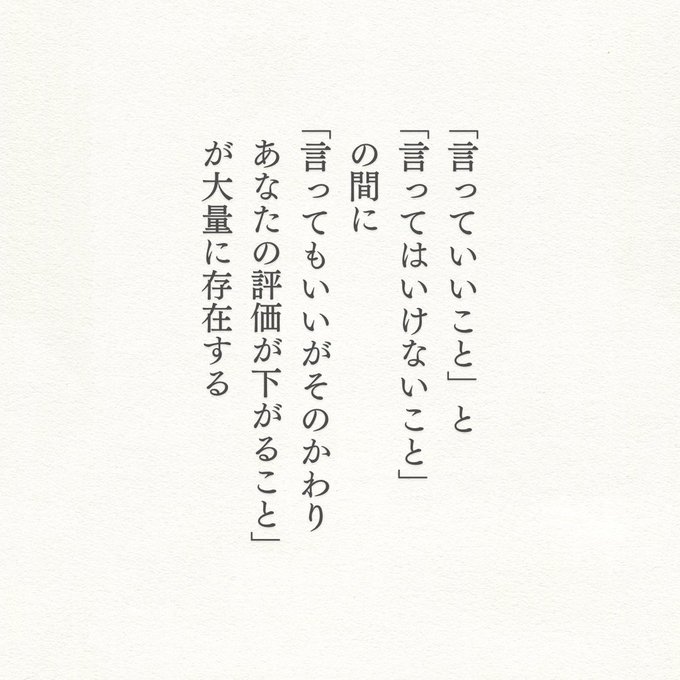 「言っていいこと」と
「言ってはいけないこと」
の間に
「言ってもいいがそのかわり
あなたの評価が下がること」
が大量に存在する